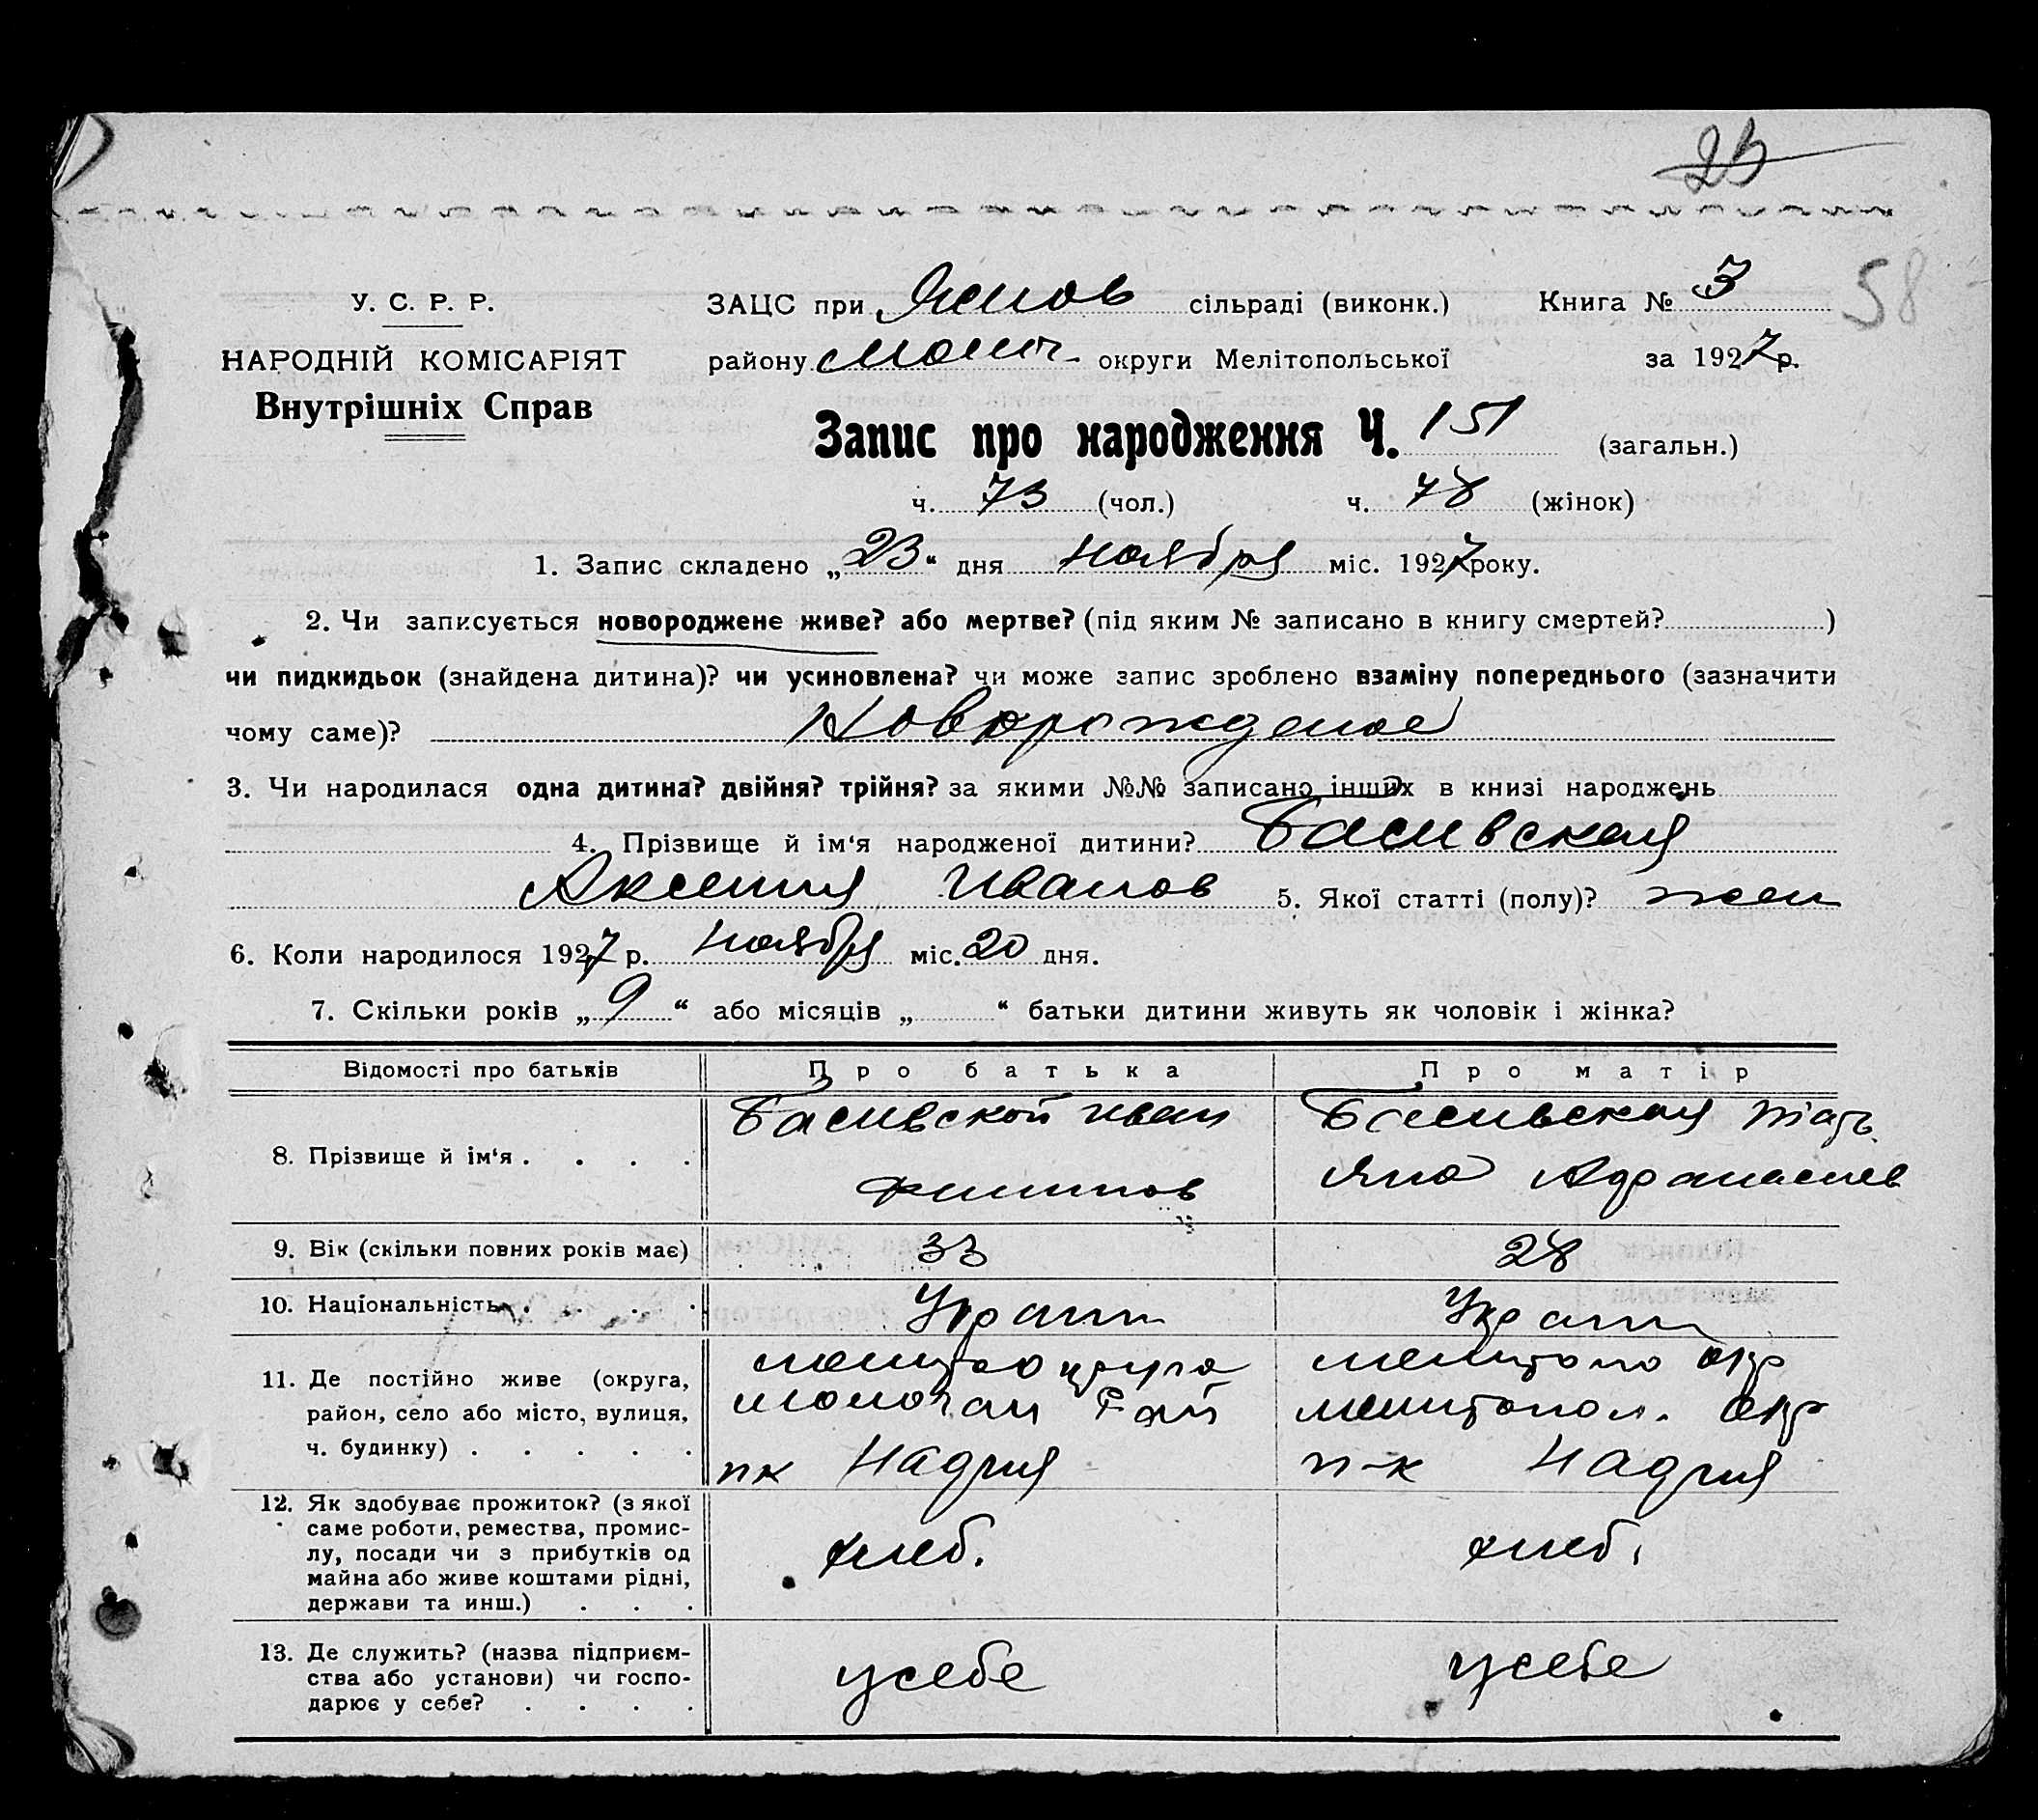 23
58
У. С. Р. Р.
НАРОДНІЙ КОМІСАРІЯТ
Внутрішніх Справ
ЗАЦС при Яснов сільраді (виконк.) Книга № 3
району округи Мелітопольської за 1927 р.
Запис про народження Ч. 151 (загальн.)
ч. 73 (чол.) ч. 78 (жінок)
1. Запис складено „23“ дня ноября міс. 1927 року.
2. Чи записується новороджене живе? або мертве? (під яким № записано в книгу смертей? )
чи пидкидьок (знайдена дитина)? чи усиновлена? чи може запис зроблено взаміну попереднього (зазначити
чому саме)? Новорожденое
3. Чи народилася одна дитина? двійня? трійня? за якими №№ записано інших в книзі народжень
4. Прізвище й ім‘я народженої дитини? Басивская
Аксения Иванов 5. Якої статті (полу)? жен
6. Коли народилося 1927 р. ноября міс. 20 дня.
7. Скільки років „9“ або місяців „ “ батьки дитини живуть як чоловік і жінка?
Відомості про батьків Про батька Про матір
8. Прізвище й ім‘я . . . . Басивской Иван Филипов Басивская Тать яна Афанасиев
9. Вік (скільки повних років має) 33 28
10. Національність . . . . Украин Украин
11. Де постійно живе (округа,
район, село або місто, вулиця,
ч. будинку) . . . . .
пк Надия
мелитопол. окр
п-к Надия
12. Як здобуває прожиток? (з якої
саме роботи, ремества, промис-
лу, посади чи з прибутків од
майна або живе коштами рідні,
держави та инш.) . . .
хлеб. хлеб.
13. Де служить? (назва підприєм-
ства або установи) чи госпо-
дарює у себе? . . . .
у себе у себе